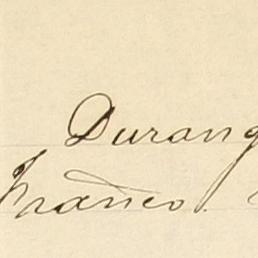 Durang
Franco.